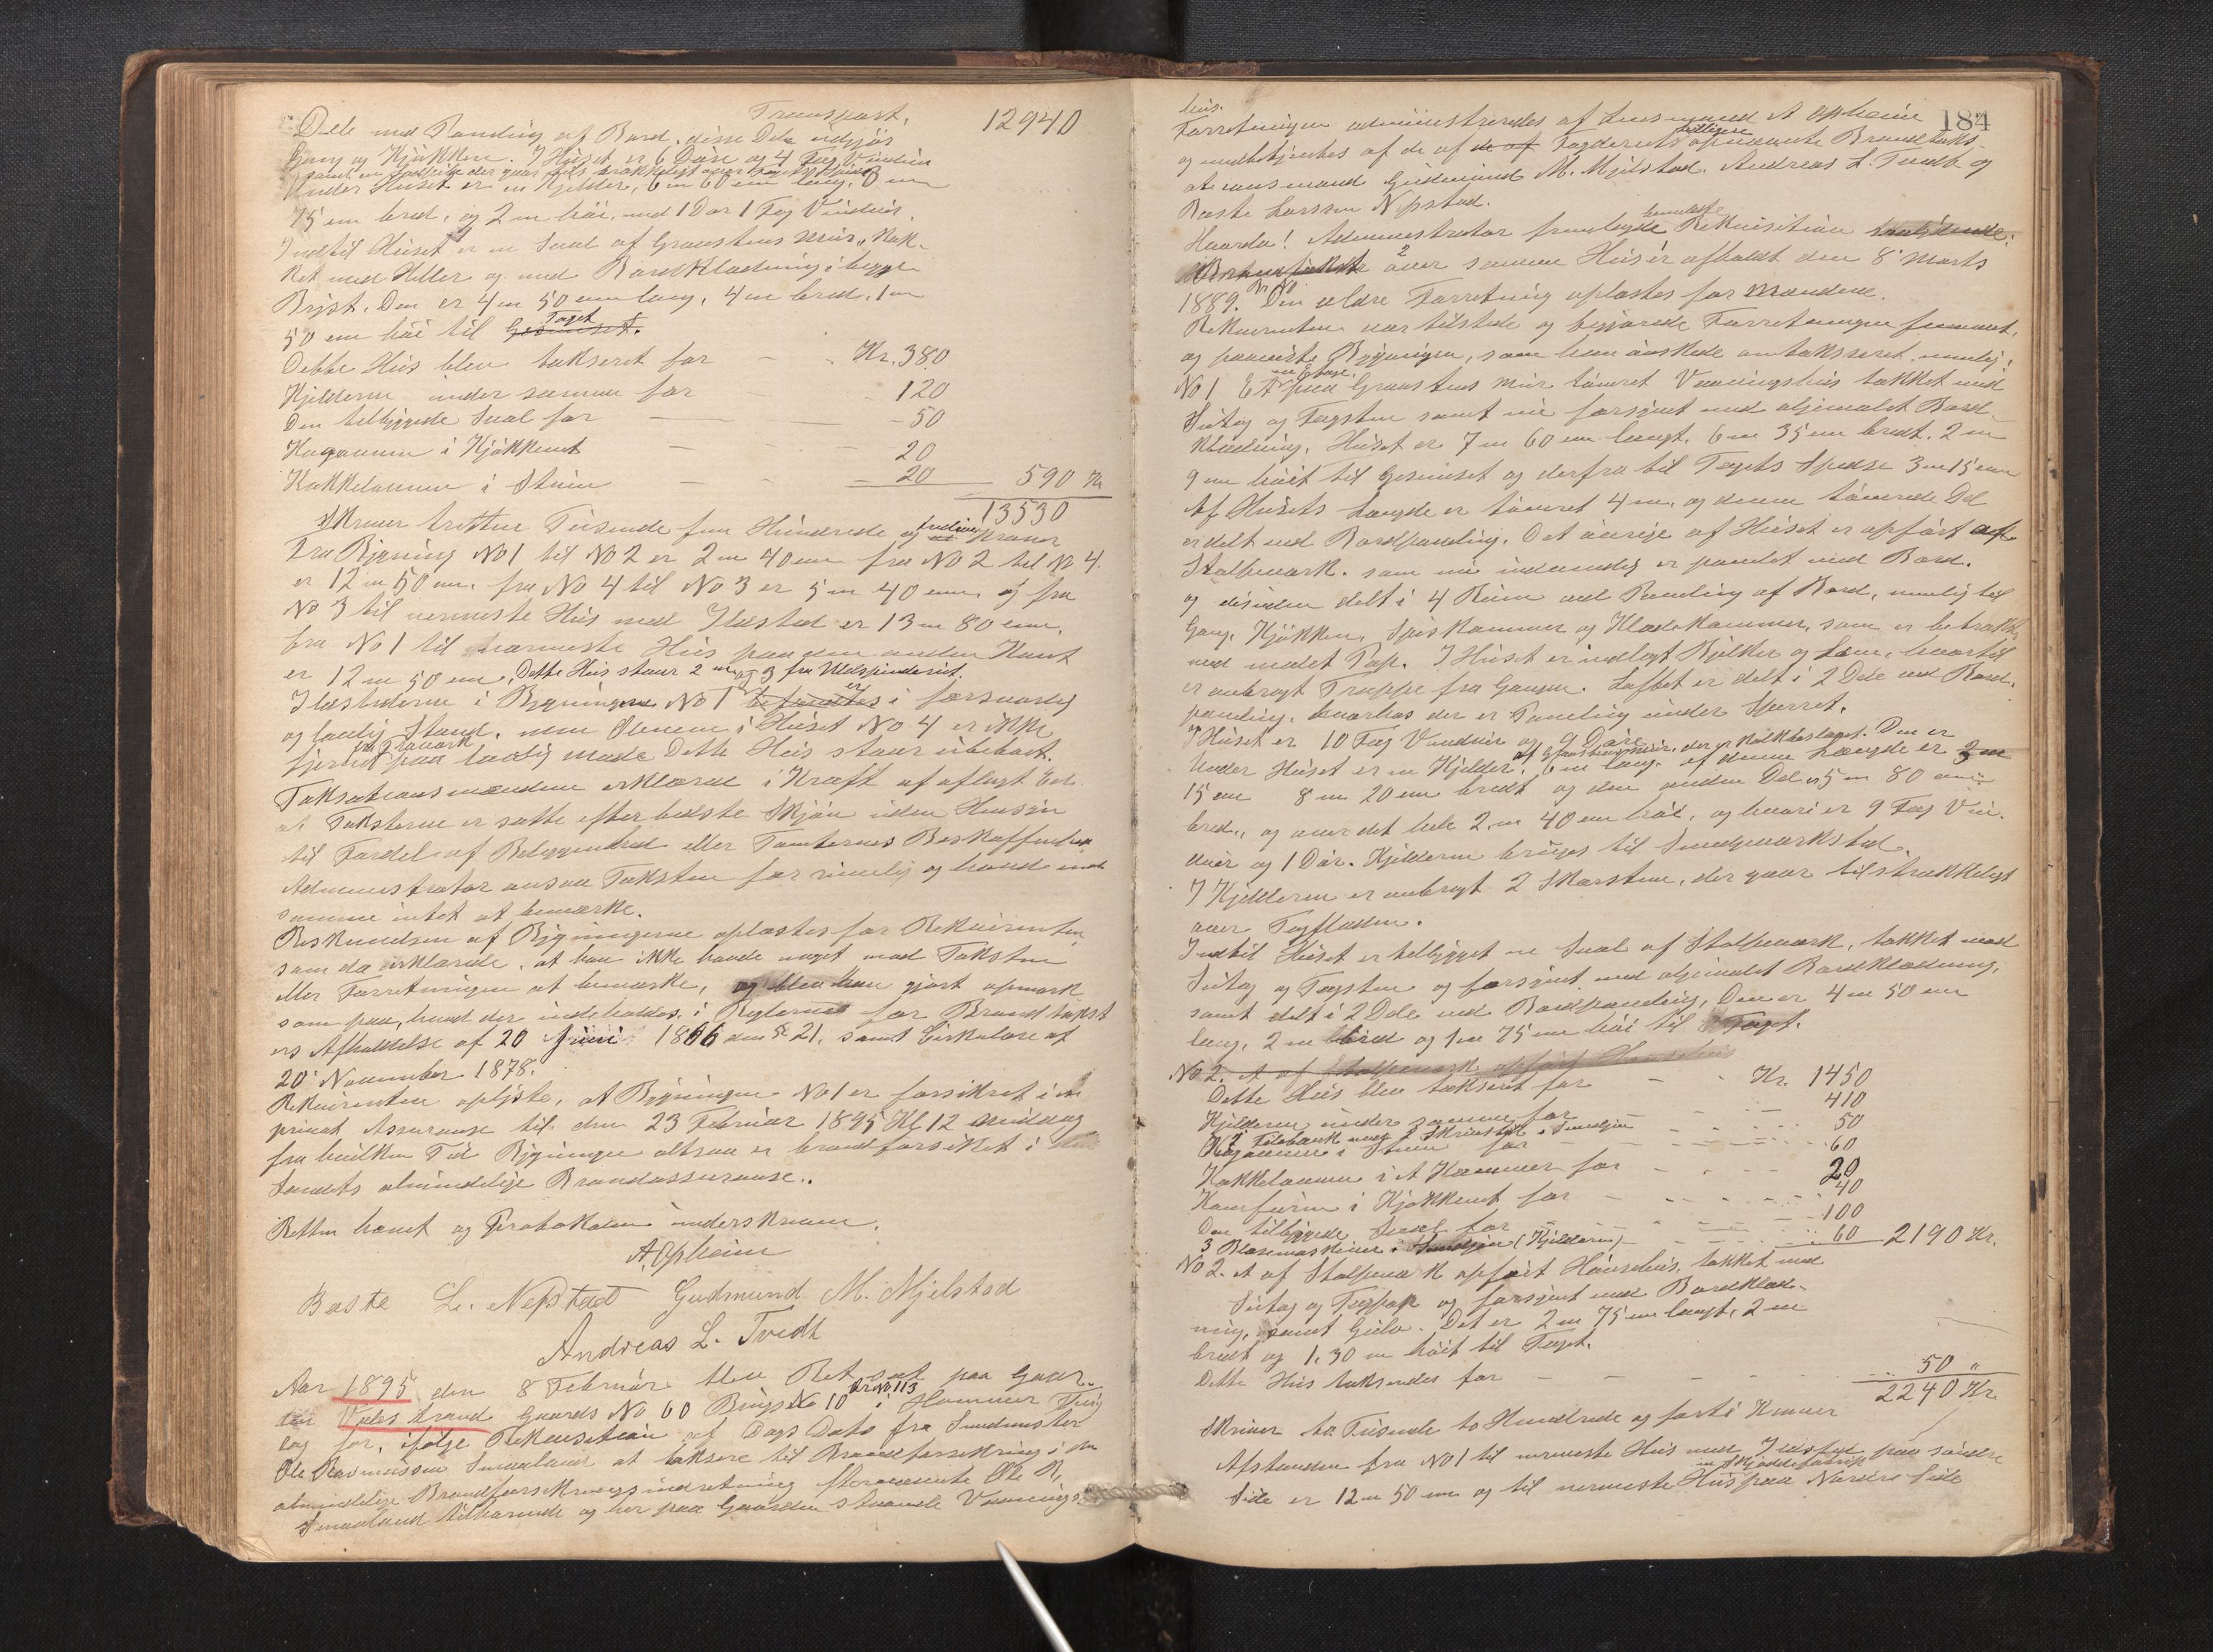 Transport, 12940
Dele med Panding af Bord. disse Dele udgjør
Gang og Kjøkken. I Huset er 6 Døre og 4 Fag Vinduer
Under Huset er en Kjelder, 6 m 60 cm lang,
75 cm bred, og 2 m høi, med 1 Dør 1 Fag Vindue.
Indtil Huset er en Sval af Graastens Muur, Tæk-
ket med Heller og med Bordklædning i begge
Bryst. Den er 4 m 50 cm lang, 4 m bred, 1 m
50 cm høi til Gesimset. Taget
Dette Hus blev takseret for - - Kr. 380
Kjelderen under samme for - - 120
Den tilbyggede Sval for - - 50
Kogovnen i Kjøkkenet - - 20
Kakkelovnen i Stuen - - 20 590 Kr
13530
Skriver tretten Tusinde fem Hundrede og tredive Kroner
Fra Bygning No 1 til No 2 er 2 m 40 cm fra No 2 til No 4.
er 12 m 50 cm. fra No 4 til No 3 er 5 m 40 cm og fra
No 3 til nermeste Hus med Ildsted er 13 m 80 cm.
fra No 1 til nærmeste Hus paa den anden Kant
er 12 m 50 cm. Dette Hus staar 2 m og 3 fra Uldspinderiet.
Ildstederne i Bygningen No 1 befindes er i forsvarlig
og lovlig Stand, men Ovnen i Huset No 4 er ikke
fjernet fra Træværk paa lovlig maade Dette Hus staar ubeboet.
Taksationsmændene erklærede i Kraft af aflagt Eed
at Taksterne er satte efter bedste Skjøn uden Hensyn
til Fordel af Beliggenhed eller Tomternes Beskaffenhed
Administrator ansaa Taksten for rimelig og havde mod
samme intet at bemærke.
Beskrivelsen af Bygningerne oplæstes for Rekvirenten
som da erklærede, at han ikke havde noget mod Taksten
eller Forretningen at bemærke, og blev han gjort opmærk
som paa, hvad der indeholdes i Reglerne for Brandtakst
ers Afholdelse af 20 Juni 1866 dens § 21. samt Cirkulære af
20 November 1878.
Rekvirenten oplyste, at Bygningen No 1 er forsikret i en
privat Assurance til den 23 Februar 1895 Kl 12 Middag
fra hvilken Tid Bygningen altsaa er brandforsikret i
Landets almindelige Brandassurance.
Retten hævet og Protokolen underskreven.
A. Opheim
Baste L. Nepstad Gudmund M. Mjelstad
Andreas L. Tvedt
Aar 1895 den 8 Februar blev Ret sat paa Gaar-
den Valestrand Gaards No 60 Brugs No 10 Br No 113 i Hammer Thing
lag for, ifølge Rekvisition af Dags Dato fra Smedmester
Ole Rasmussen Smaaland at taksere til Brandforsikring i den
almindelige Brandforsikringsindretning Ole R.
Smaaland tilhørende og her paa Gaarden staaende Vaanings-
184
hus.
Forretningen administreredes af Lensmand A Opheim
og medbetjentes af de af de af Fogderiets tidligere opnævnte Brandtaks-
ationsmænd Gudmund M. Mjelstad. Andreas L. Tvedt og
Baste Larssen Nepstad.
Hvorda! Administrator fremlagde bemeldte Rekvisition
over samme Hus er afholdt den 8 Marts
1889. Den ældre Forretning oplæstes for Mændene.
Rekvirenten var tilstede og begjærede Forretningen fremmet,
og paaviste Bygningen, som han ønskede omtakseret, nemlig:
No 1 Et en Etage, paa Graastens Mur tømret Vaaningshus tækket med
Sutag og Tagsten samt nu forsynet med oljemalet Bord-
klædning. Huset er 7 m 60 cm langt, 6 m 35 cm bredt. 2 m
9 cm høit til Gesimset og derfra til Tagets Spidse 3 m 15 cm
Af Husets Længde er tømret 4 m, og denne tømrede Del
er delt med Bordpaneling. Det øvrige af Huset er opført af
Stolpeværk. som nu indvendig er panelet med Bord.
og desuden delt i 4 Rum ved Paneling af Bord, nemlig til
Gang, Kjøkken, Spiskammer og Klædekammer, som er betrukket
med malet Pap. I Huset er indlagt Bjelker og Lem, hvortil
er anbragt Trappe fra Gangen. Loftet er delt i 2 Dele ved Bord-
paneling, hvorhos der er Paneling under Sperret.
I Huset er 10 Fag Vinduer og 9 Døre
Under Huset er en Kjelder, af Graastensmuur, der er kalkbeslaget. Den er 6 m lang. af denne Længde er 3 m
15 cm 8 m 20 cm bredt og den anden Del er 5 m 80 cm
bred, og over det hele 2 m 40 cm høi, og hvori er 9 Fag Vin-
duer og 1 Dør. Kjelderen bruges til Smedværksted.
I Kjelderen er anbragt 2 Skorstene, der gaar tilstrækkeligt
over Tagfladen.
Indtil Huset er tilbygget en Sval af Stolpeværk, tækket med
Sutag og Tagsten og forsynet med oljemalet Bordklædning,
samt delt i 2 Dele ved Bordpaneling, Den er 4 m 50 cm
lang, 2 m bred og 1 m 75 cm høi til Taget.
No 2. Et af Stolpeværk opført Hønsehus
Dette Hus blev takseret for - - Kr. 1450
Kjelderen under samme for - - 410
50
Kogovnen i Stuen for - - 60
Kakkelovnen i et Kammer for - - 20
Komfuren i Kjøkkenet for - - 40
Den tilbyggede Sval for - - 100
3 Blæsemaskiner i Smedjen (Kjelderen) - - 60 2190 Kr.
No 2. Et af Stolpeværk opført Hønsehus, tækket med
Sutag og Tagpap og forsynet med Bordklæd-
ning, samt Gulv. Det er 2 m 75 cm langt, 2 m
bredt og 1.30 m høit til Taget.
Dette Hus takseredes for - - 50 "
2240 Kr.
Skriver to Tusinde to Hundrede og forti Kroner
Afstanden fra No 1 til nermeste Hus med Ildsted paa søndre
Side er 12 m 50 cm og til nermeste Hus paa Nordre Side